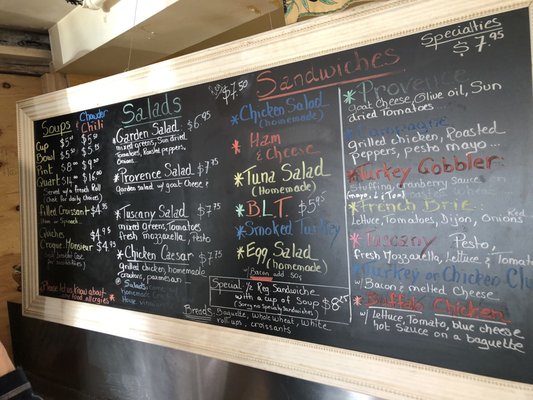 Soups & Chowder
Chili
Cup $5 $5.
Bowl $5
Pint $8 $9
Quart $11 $16
Served w/ a French Roll
Filled Croissant $4.95
Ham or Spinach
Quiches
Croque Monsieur $4.95
*Please let us know about
any food allergies*
Salads
*Garden Salad $6.95
mixed greens, sun dried
Tomatoes, Roasted peppers,
Onions
*Provence Salad $7.75
Garden salad w/ goat cheese
*Tuscany Salad $7.75
mixed greens, Tomatoes
fresh mozzarella, pesto
*Chicken Caesar $7.75
grilled chicken, homemade
croutons, parmesan
*Salads
homemade
House vinaigrette
Sandwiches
$7.50
*Chicken Salad
(homemade)
*Ham
& Cheese
*Tuna Salad
(Homemade)
*B.L.T $5.95
*Smoked Turkey
*Egg Salad
(Homemade)
w/ Bacon add
Special ½ Reg Sandwiche
with a cup of Soup $8.25
(Sorry no Specialty Sandwiches)
Breads: Baguette, whole wheat, white
roll-ups, croissants
Specialties
$7.95
*Provence
Goat Cheese, Olive oil, Sun
dried Tomatoes
*Campagne
grilled chicken, Roasted
peppers, pesto mayo
*Turkey Gobbler
Stuffing, cranberry Sauce
*French Brie
Lettuce, Tomatoes, Dijon, Red Onions
*Tuscany Pesto,
fresh Mozzarella, Lettuce & Tomatoes
*Turkey or Chicken Club
w/ Bacon & melted Cheese
*Buffalo Chicken
w/ Lettuce, Tomato, blue cheese
hot Sauce on a baguette